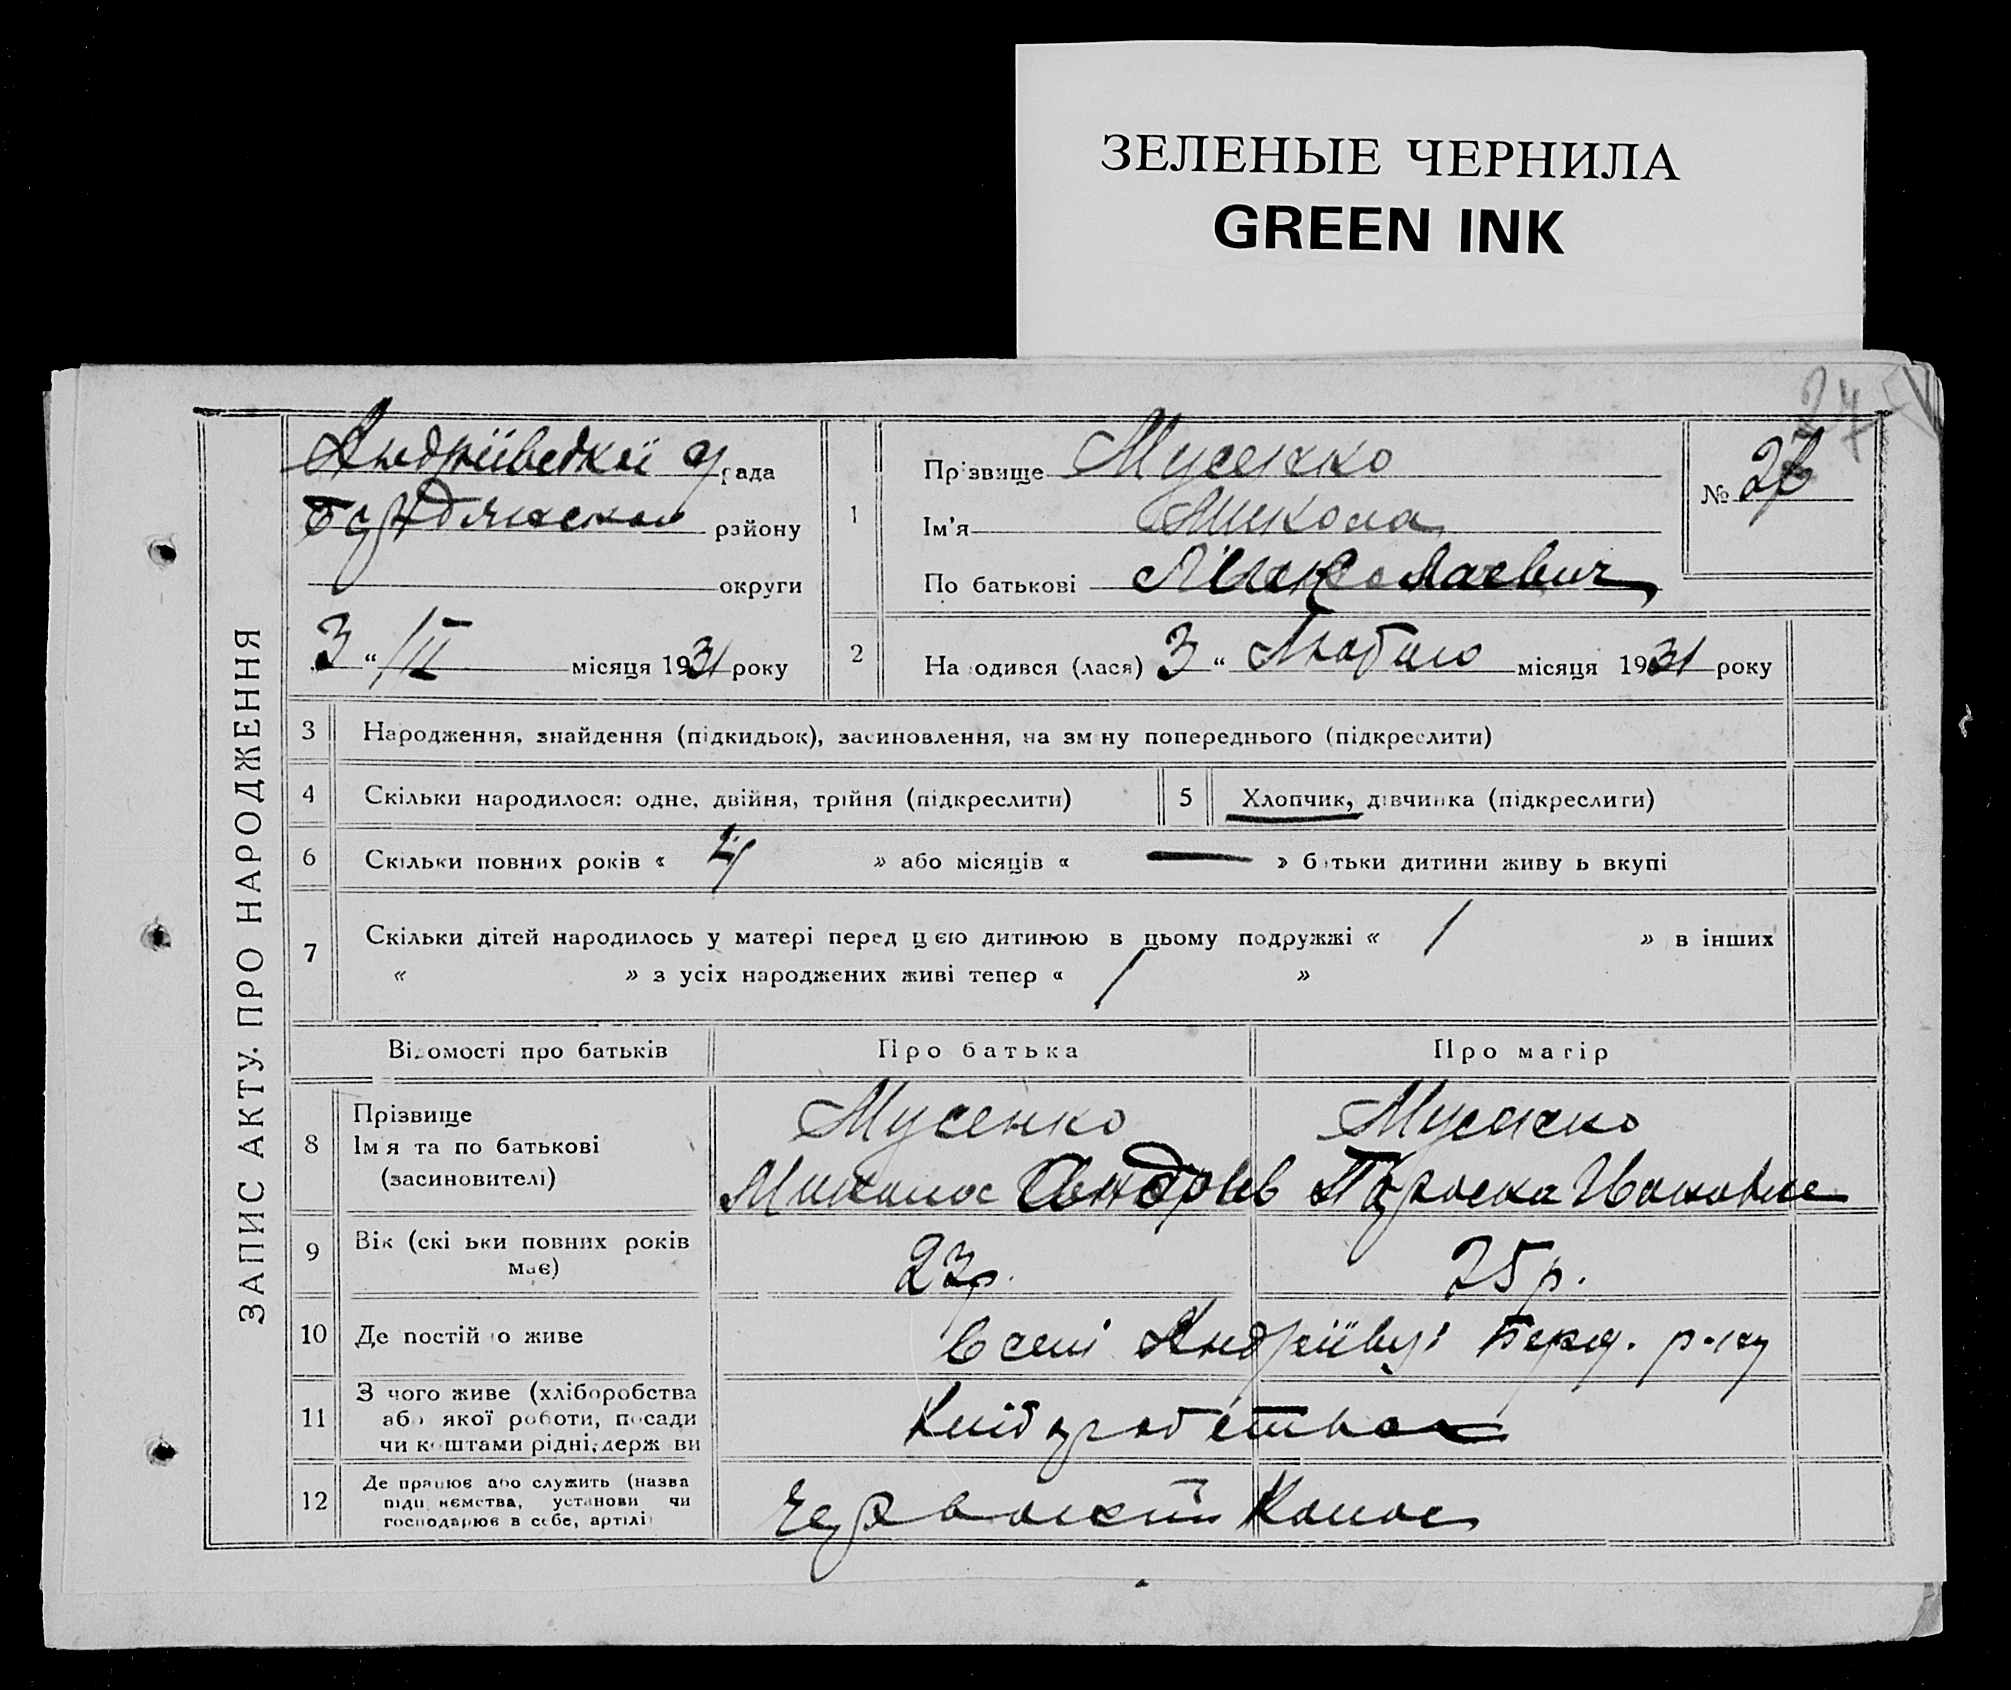 ЗЕЛЕНЫЕ ЧЕРНИЛА
GREEN INK
27
ЗАПИС АКТУ. ПРО НАРОДЖЕННЯ
рада
району
округи
3 “ /ІІ місяця 1931 року
1
Прізвище Мусенко
Ім'я Микола
По батькові Миколаевич
№
2
На одився (лася) 3 “ Лютого місяця 1931 року
3 Народження, знайдення (підкидьок), засиновлення, на зм ну попереднього (підкреслити)
4 Скільки народилося: одне, двійня, трійня (підкреслити)
5 Хлопчик, дівчинка (підкреслити)
6 Скільки повних років « 4 » або місяців « — » батьки дитини живу ь вкупі
7 Скільки дітей народилось у матері перед цією дитиною в цьому подружжі « 1 » в інших
« » з усіх народжених живі тепер « 1 »
Відомості про батьків
Про батька
Про матір
8 Прізвище
Ім я та по батькові
(засиновителі)
Мусенко
Микола Андріев
Мусенко
Параска Ивановна
9 Вік (скі ьки повних років
має)
23р.
25р.
10 Де постій о живе
в селі Андріївці Берд. р-ну
11 З чого живе (хліборобства
або якої роботи, посади
чи коштами рідні, держ ви
Хліборобства
12 Де працює або служить (назва
підп иємства, установи чи
господарює в себе, артілі
Червоний Колос